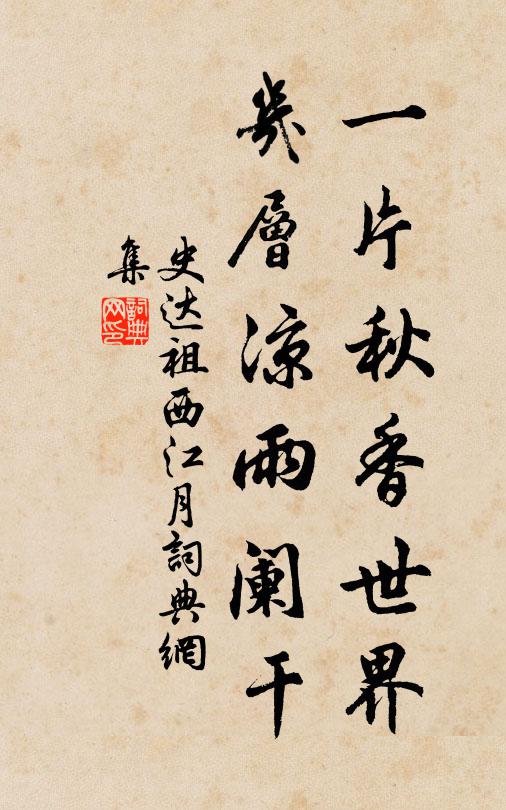 一片秋香世界
幾層凉雨阑干
史达祖西江月詞典網
集
詞典网印